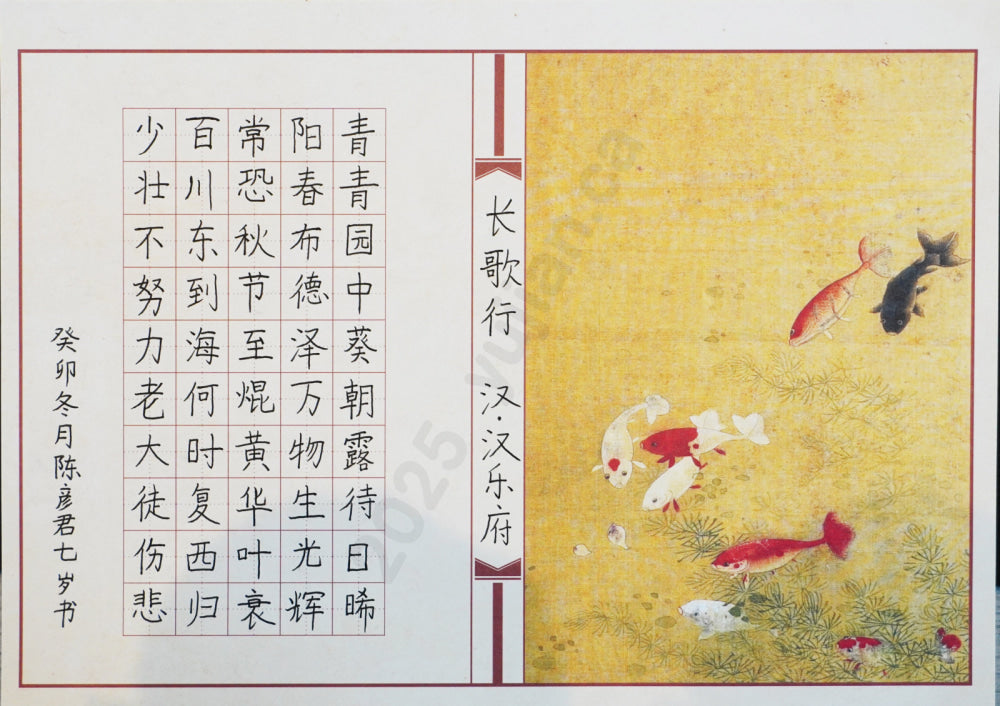 长歌行 汉·汉乐府
青青园中葵朝露待日晞
阳春布德泽万物生光辉
常恐秋节至焜黄华叶衰
百川东到海何时复西归
少壮不努力老大徒伤悲
癸卯冬月陈彦君七岁书
2025 yuyuan.ca